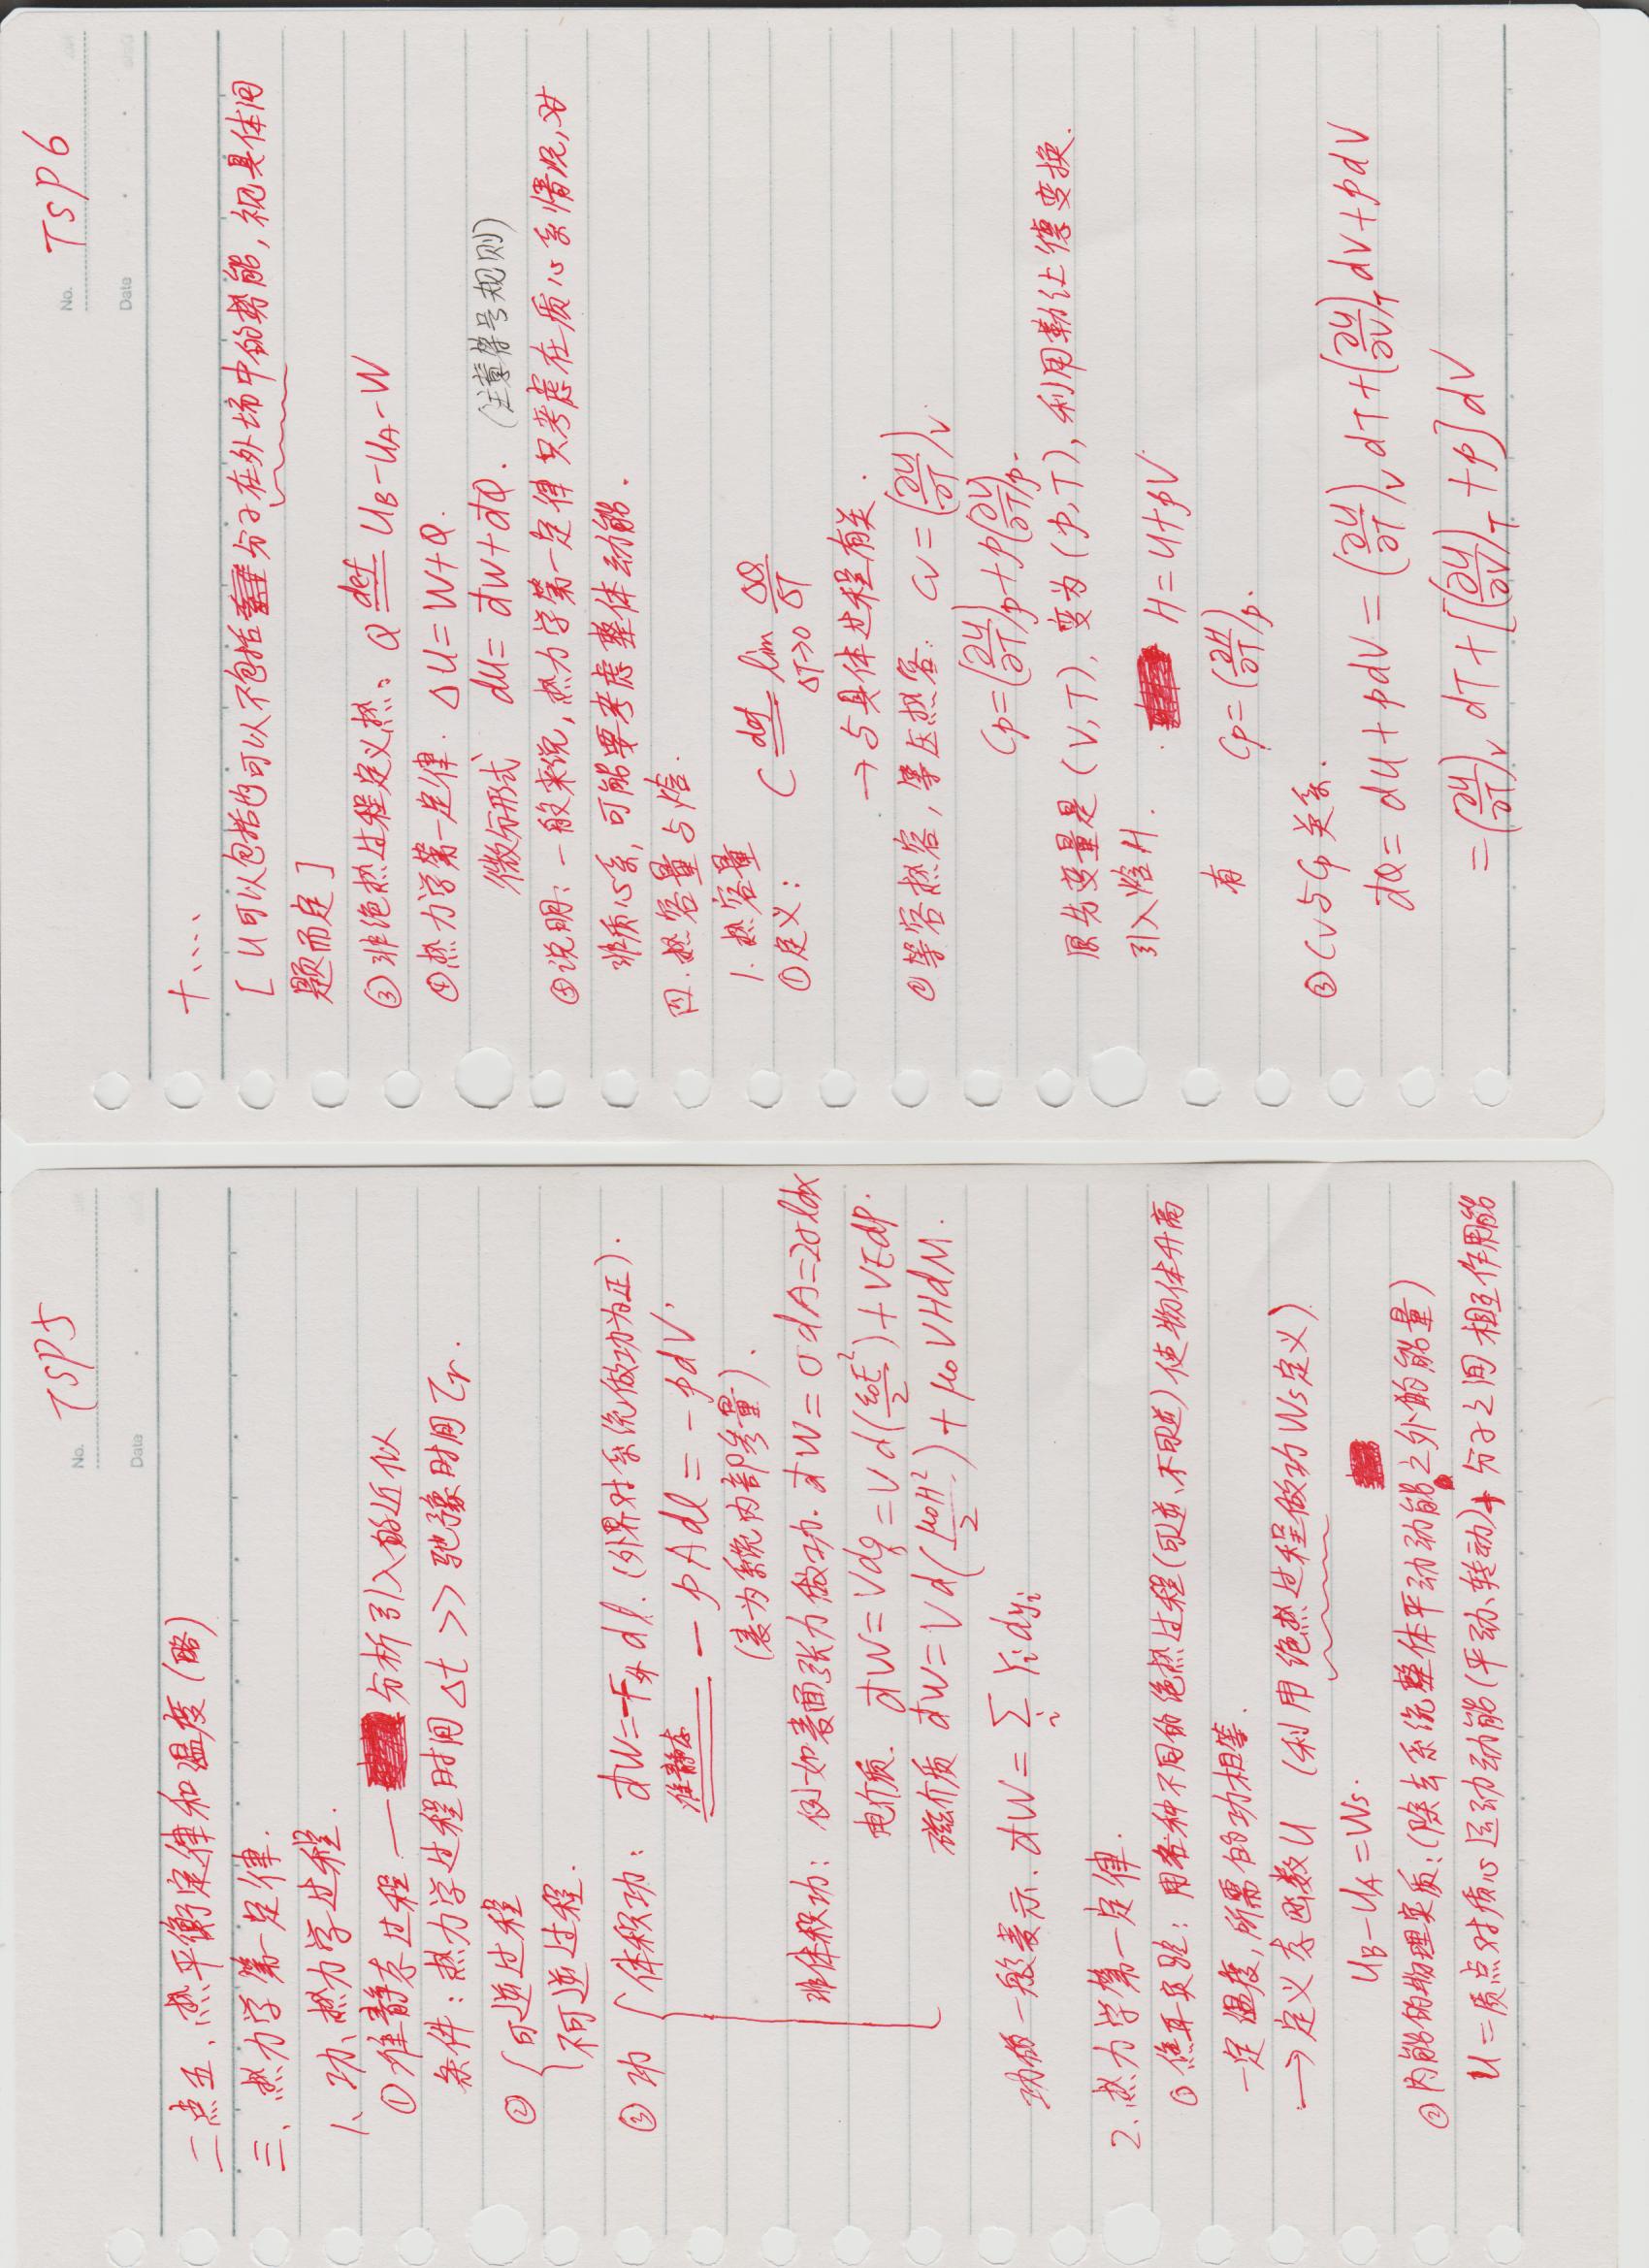 No. TSP5
Date
二点五、热平衡定律和温度(略)
三、热力学第一定律.
1、功、热力学过程.
① 准静态过程 — 分析引入的近似
条件:热力学过程时间 Δt >> 驰豫时间 τr.
② { 可逆过程
不可逆过程.
③ 功 { 体积功: đW=-F外 dl. (外界对系统做功为正).
准静态 = -pAdl = -pdV,
(表为系统内部参量).
非体积功: 例如表面张力做功. đW = σdA=2σldx
电介质. đW = Vdq = Vd(ε₀E²/2) + VEdP.
磁介质 đW = Vd(μ₀H²/2) + μ₀VHdM.
功的一般表示. đW = Σ_i Y_i dy_i
2、热力学第一定律.
① 焦耳实验: 用各种不同的绝热过程(可逆、不可逆)使物体升高
一定温度,所需的功相等.
→ 定义态函数U (利用绝热过程做功Ws定义)
U_B-U_A=Ws.
② 内能的物理实质:(除去系统整体平动动能之外的能量)
U = 质点对质心运动动能(平动、转动)+ 分子之间相互作用能
No. TSP6
Date
+....
[ U可以包括也可以不包括分子在外场中的势能,视具体问
题而定 ]
③ 非绝热过程定义热: Q def= U_B-U_A-W
④ 热力学第一定律. ΔU=W+Q.
微分形式 dU= đW+đQ. (注意符号规则)
⑤ 说明: 一般来说,热力学第一定律只考虑在质心系情况,对
非质心系,可能要考虑整体动能.
四. 热容量与焓.
1. 热容量
① 定义: C def= lim_{ΔT→0} ΔQ/ΔT
→ 与具体过程有关.
② 等容热容,等压热容: Cv=(∂U/∂T)_V.
Cp=(∂U/∂T)_p+p(∂V/∂T)_p.
原先变量是(V,T),变为(p,T),利用勒让德变换.
引入焓H. H=U+pV
有 Cp=(∂H/∂T)_p.
③ Cv与Cp关系.
đQ= dU+pdV=(∂U/∂T)_V dT+(∂U/∂V)_T dV+pdV
=(∂U/∂T)_V dT+[(∂U/∂V)_T+p]dV